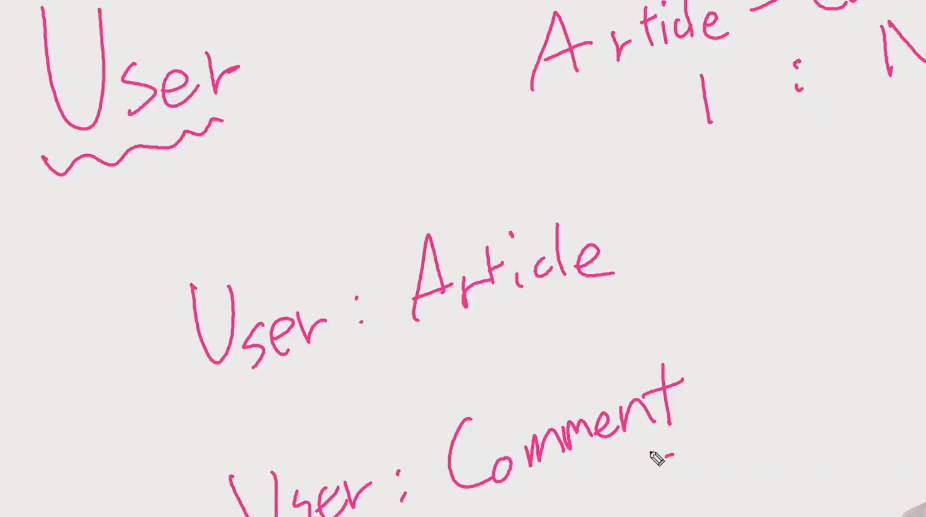 User
Article
1 : N
User : Article
User : Comment